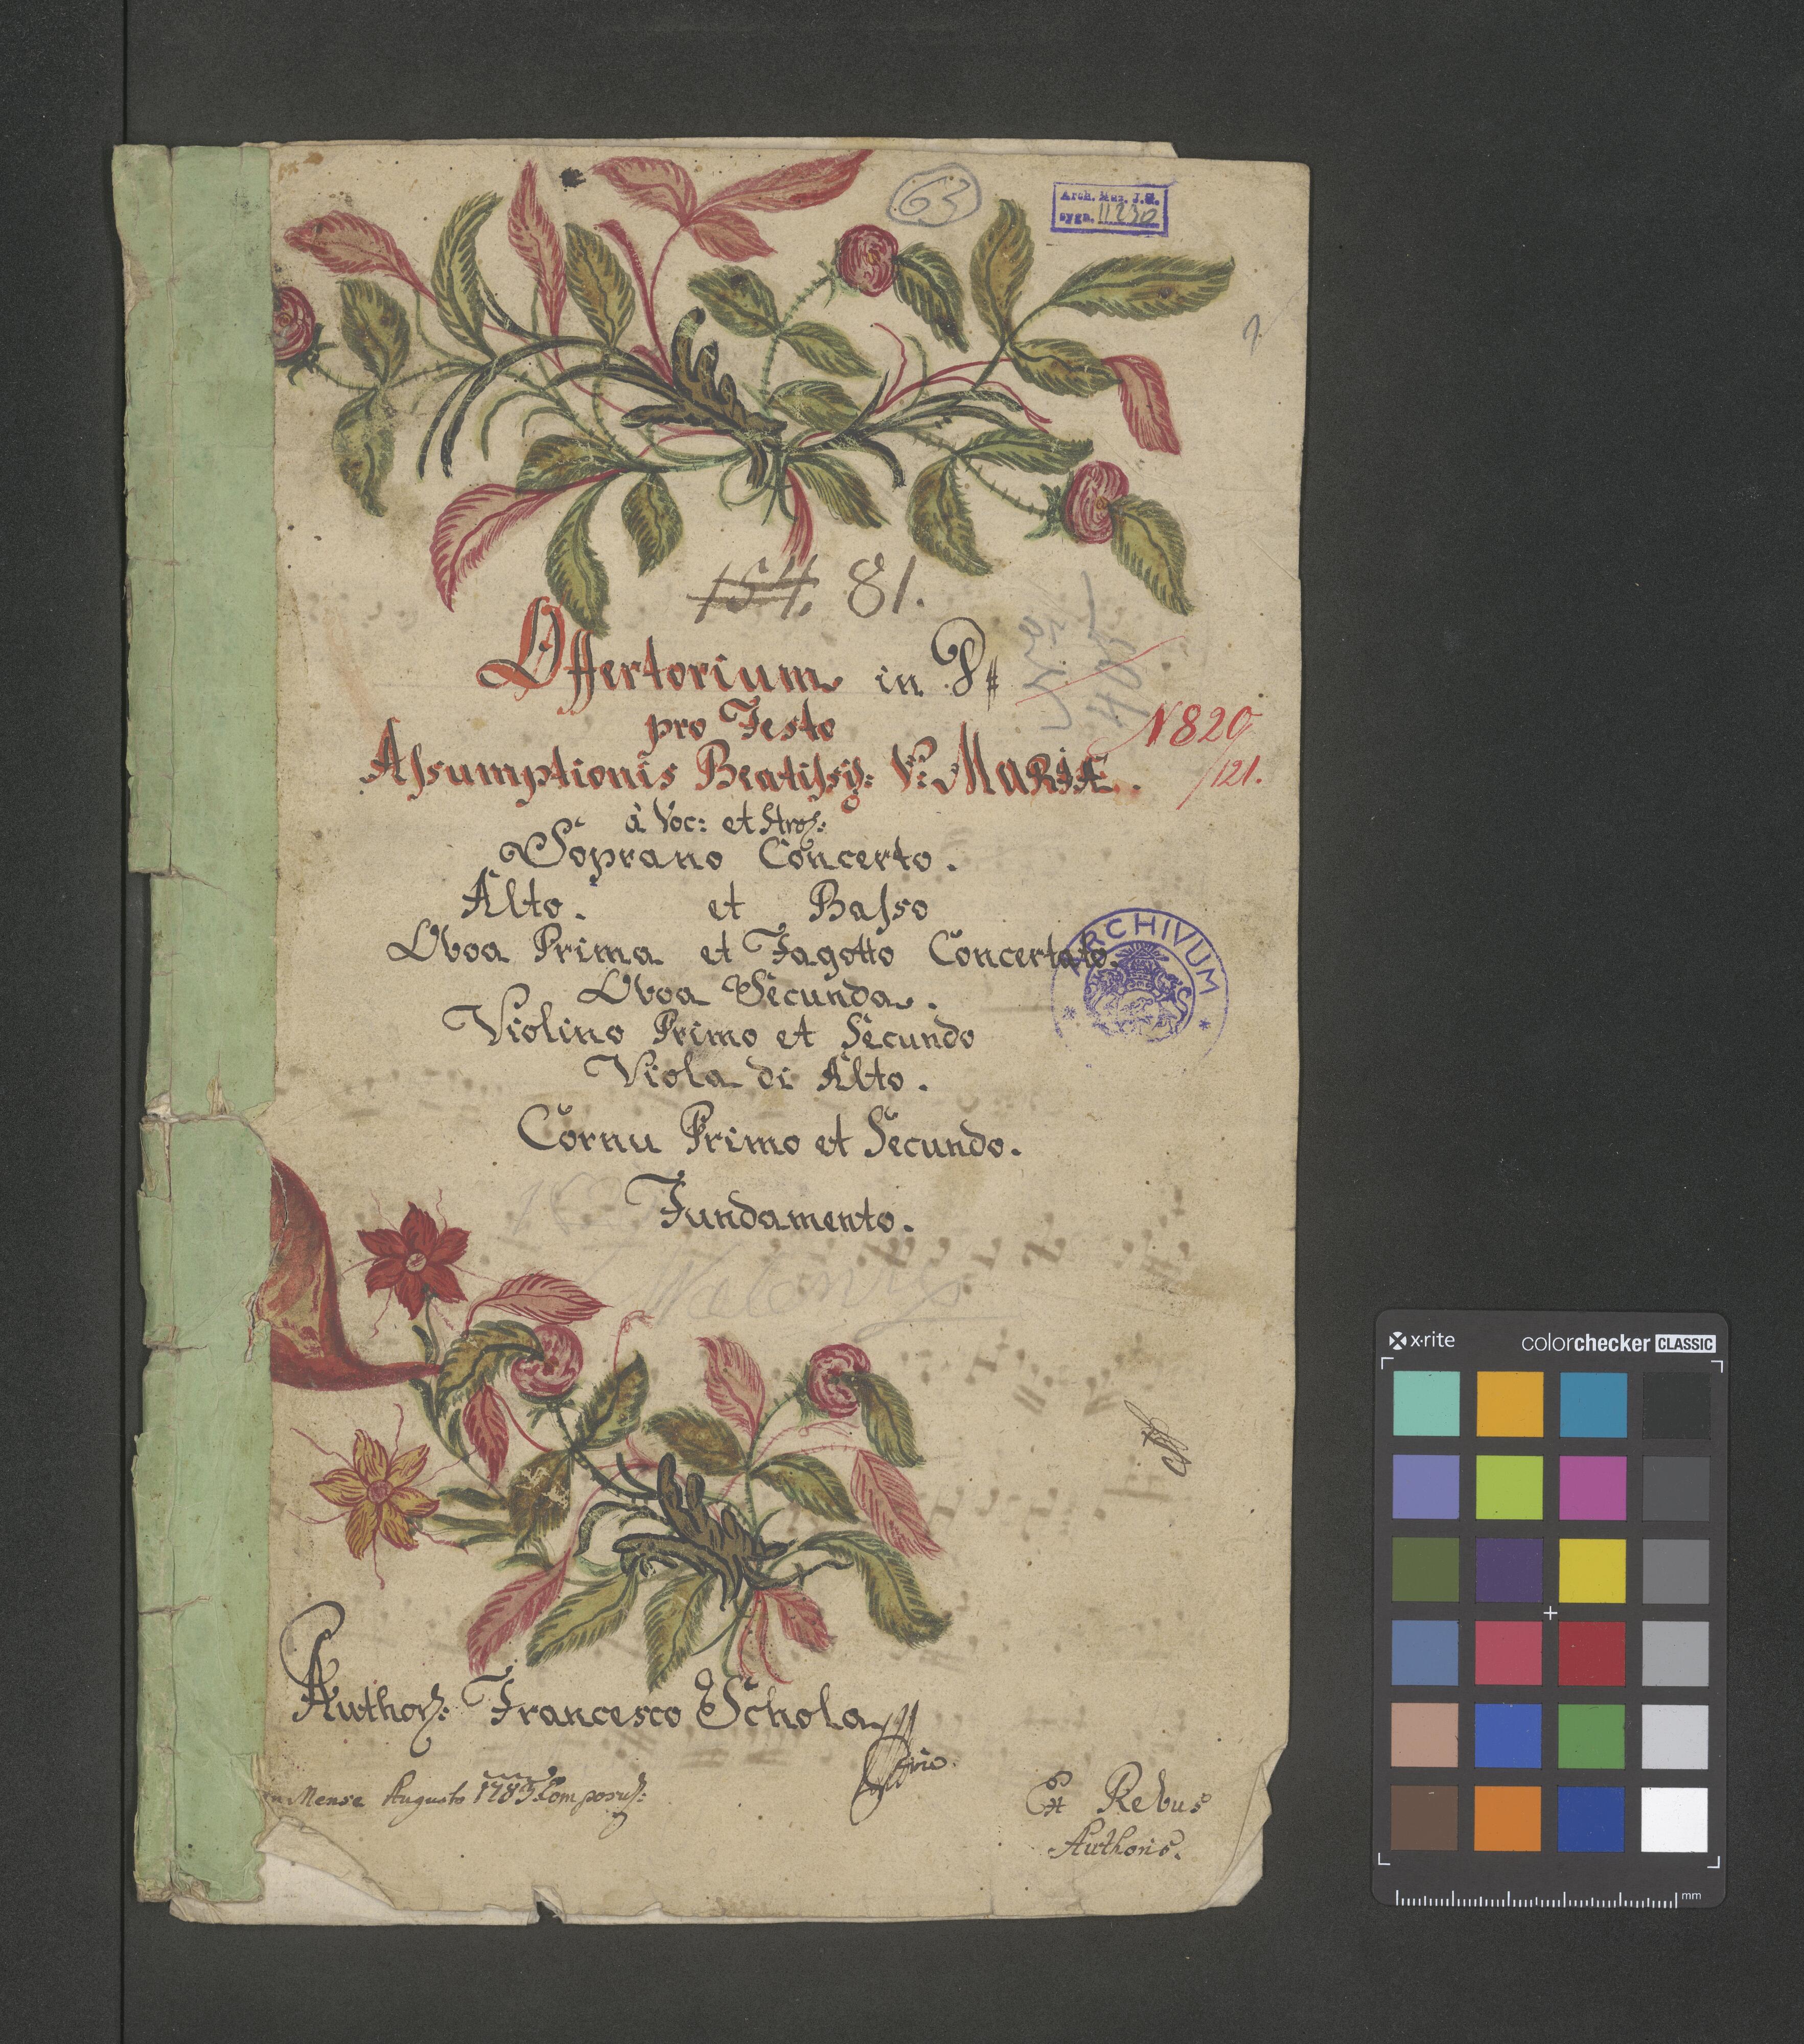 63
Arch. Muz. J.G.
sygn. 11230
154. 81.
Offertorium in D#
pro Festo
Aſsumptionis Beatiſsis: V: MARIÆ.
N 820
/121.
à Voc: et Stro:
Soprano Concerto.
Alto. et Baſso
Oboa Prima et Fagotto Concertato.
Oboa Secunda.
ARCHIVUM
Violino Primo et Secundo
Viola di Alto.
Cornu Primo et Secundo.
Fundamento.
Author: Francesco Schola
in Mense Augusto 1785 Composu:
Ex Rebus
Authoris.
x·rite
colorchecker CLASSIC
mm